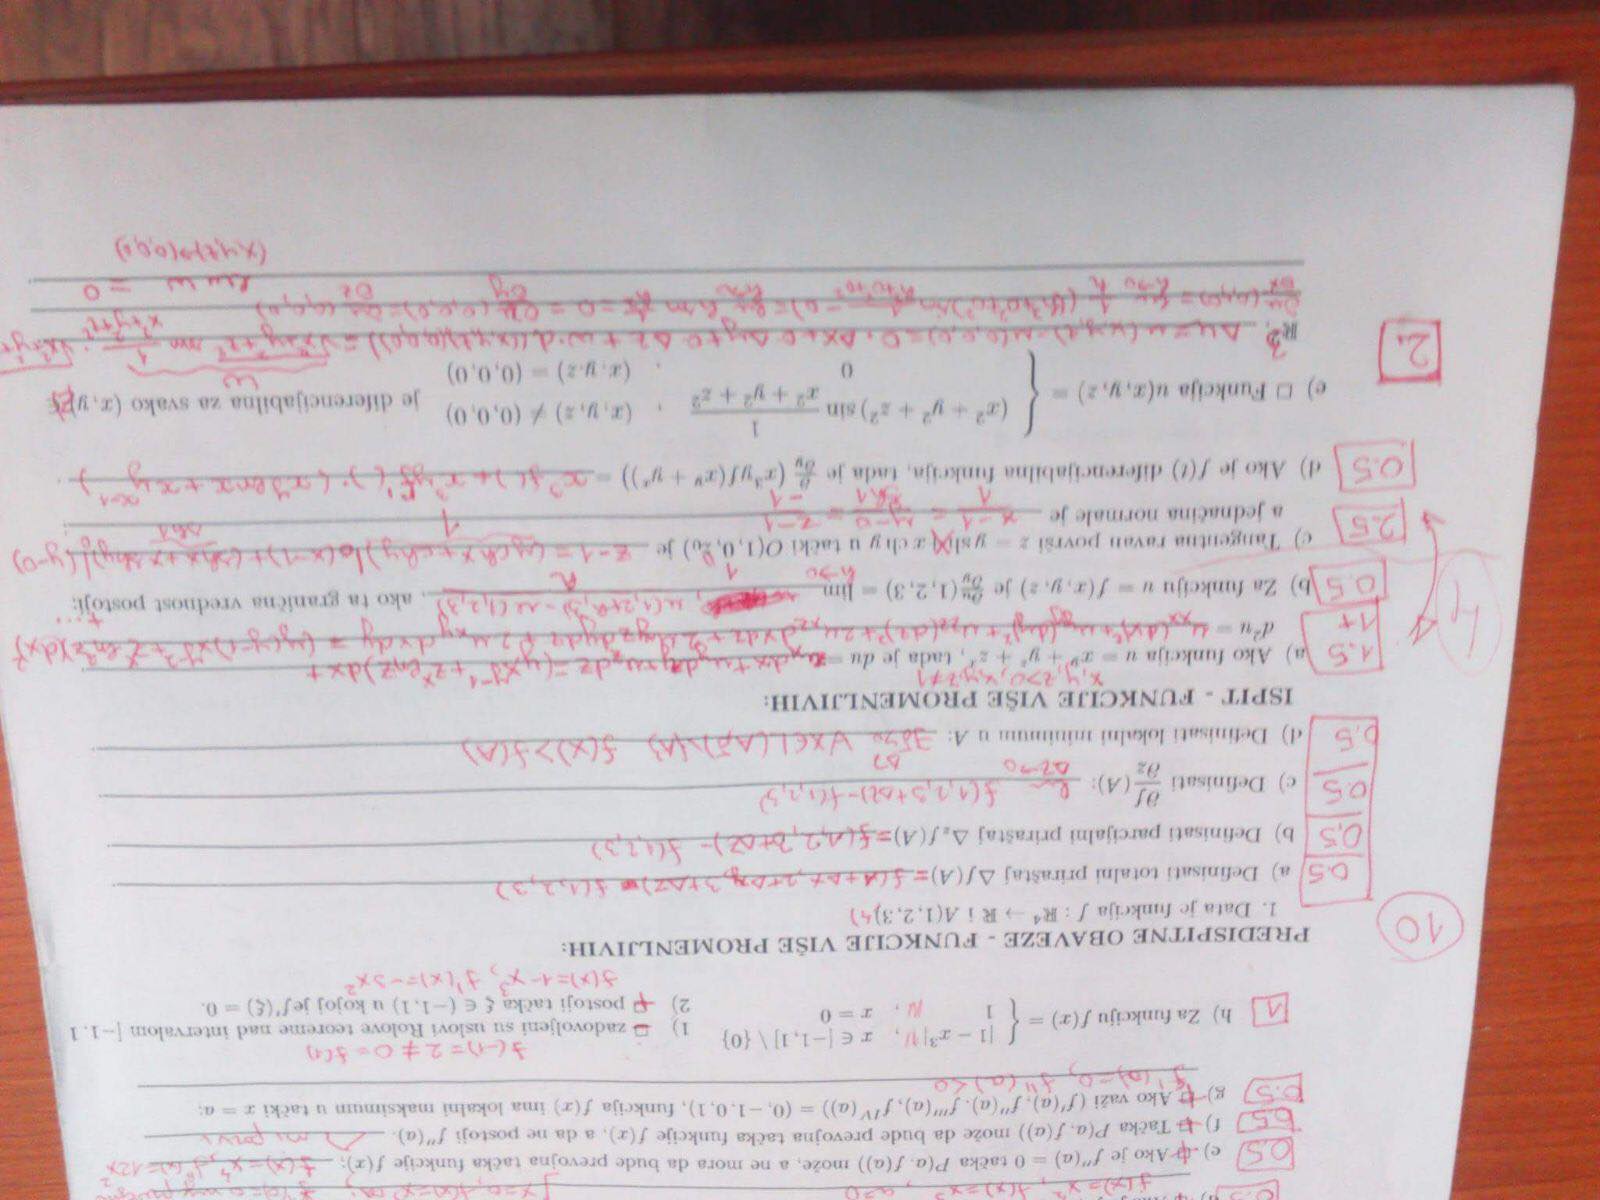 f(x)=x², f(x)=x³, a=0
0.5 e) Ako je f''(a) = 0 tačka P(a, f(a)) može, a ne mora da bude prevojna tačka funkcije f(x); f(x)=x⁴, f''(x)=12x²
0.5 f) Tačka P(a, f(a)) može da bude prevojna tačka funkcije f(x), a da ne postoji f''(a).
0.5 g) Ako važi (f'(a), f''(a), f'''(a), f^{IV}(a)) = (0, −1, 0, 1), funkcija f(x) ima lokalni maksimum u tački x = a;
f'(a)=0, f''(a)<0
f(-1)=2≠0=f(1)
1 h) Za funkciju f(x) = { |1 − x³| , x ∈ [−1, 1] \ {0}
1 , x = 0
1) □ zadovoljeni su uslovi Rolove teoreme nad intervalom [−1, 1
2) postoji tačka ξ ∈ (−1, 1) u kojoj je f'(ξ) = 0.
f(x)=1-x³, f'(x)=-3x²
10
PREDISPITNE OBAVEZE - FUNKCIJE VIŠE PROMENLJIVIH:
1. Data je funkcija f : ℝ⁴ → ℝ i A(1, 2, 3,4)
0.5 a) Definisati totalni priraštaj Δf(A)= f(1+Δx, 2+Δy, 3+Δz) - f(1,2,3)
0,5 b) Definisati parcijalni priraštaj Δ_z f(A)= f(1,2,3+Δz) - f(1,2,3)
0.5 c) Definisati ∂f/∂z (A): lim Δz→0 f(1,2,3+Δz)-f(1,2,3) / Δz
0.5 d) Definisati lokalni minimum u A: ∃δ>0 ∀X∈L(A,δ)\{A} f(X)>f(A)
ISPIT - FUNKCIJE VIŠE PROMENLJIVIH:
x,y,z>0, x,y,z≠1
1.5 a) Ako funkcija u = x^y + y^z + z^x, tada je du = u_x dx + u_y dy + u_z dz = (yx^{y-1} + z^x ln z)dx +
1+ d²u = u_xx(dx)² + u_yy(dy)² + u_zz(dz)² + 2u_xz dxdz + 2u_yz dydz + 2u_xy dxdy = (y(y-1)x^{y-2} + z^x ln²z)(dx)²
+...
4
0.5 b) Za funkciju u = f(x, y, z) je ∂u/∂y (1, 2, 3) = lim h→0 u(1,2+h,3) - u(1,2,3) / h , ako ta granična vrednost postoji;
2.5 c) Tangentna ravan površi z = y sh x x ch y u tački O(1, 0, z₀) je z-1 = (y ch x + ch y)|₀(x-1) + (sh x + x sh y)|₀(y-0)
1 sh1
a jednačina normale je x-1/1 = y-0/sh1 = z-1/-1
0.5 d) Ako je f(t) diferencijabilna funkcija, tada je ∂/∂y (x³yf(x^y + y^x)) = x³f( ) + x³yf'( )·(x^y ln x + xy^{x-1})
e) □ Funkcija u(x, y, z) = { (x² + y² + z²) sin 1/(x² + y² + z²) , (x, y, z) ≠ (0, 0, 0)
0 , (x, y, z) = (0, 0, 0)
je diferencijabilna za svako (x, y
2.
ℝ³. Δu = u(x,y,z) - u(0,0,0) = 0·Δx + 0·Δy + 0·Δz + w·d((x,y,z),(0,0,0)) = √x²+y²+z² sin 1/x²+y²+z² · √x²+y²+
w
∂u/∂x (0,0,0) = lim h→0 1/h ((h²+0²+0²) sin 1/h²+0²+0² - 0) = lim h→0 h sin 1/h² = 0 = ∂u/∂y (0,0,0) = ∂u/∂z (0,0,0)
lim w = 0
(x,y,z)→(0,0,0)